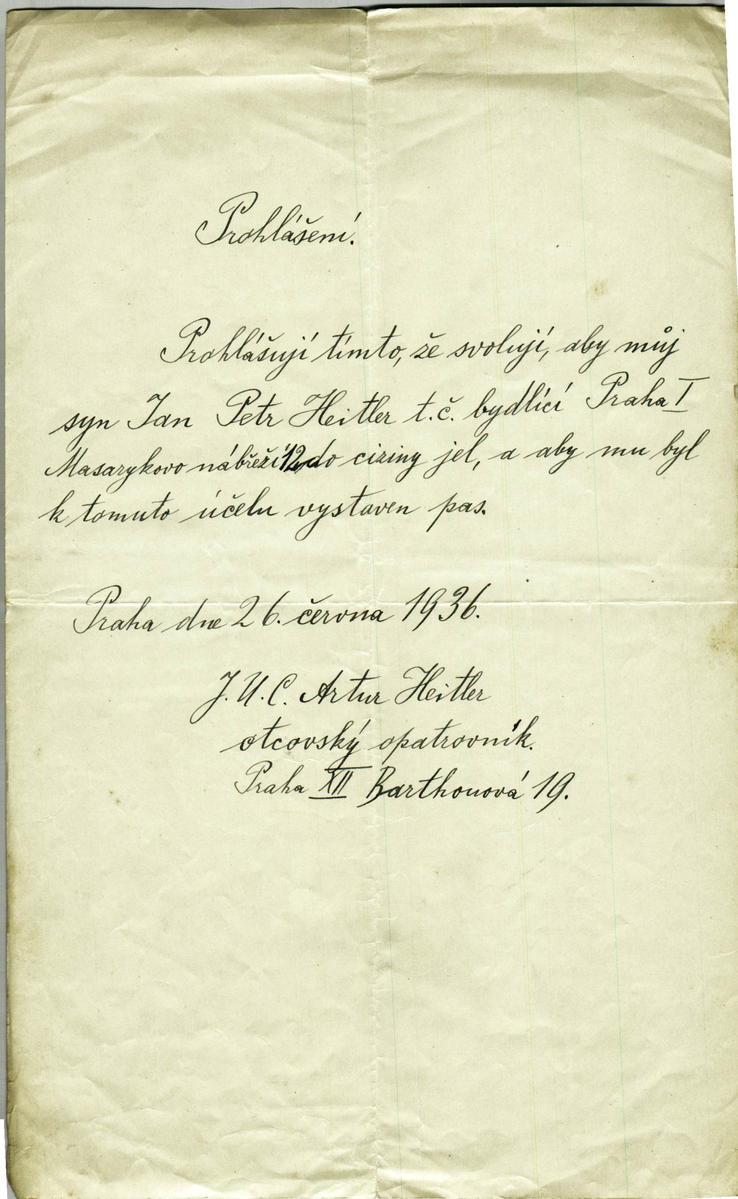 Prohlášení.
Prohlášují tímto, že svolují, aby můj
syn Jan Petr Heitler t.č. bydlící Praha I
Masarykovo nábřeží 12 do ciziny jel, a aby mu byl
k tomuto účelu vystaven pas.
Praha dne 26. června 1936.
J.U.C. Artur Heitler
otcovský opatrovník.
Praha XII Barthouová 19.